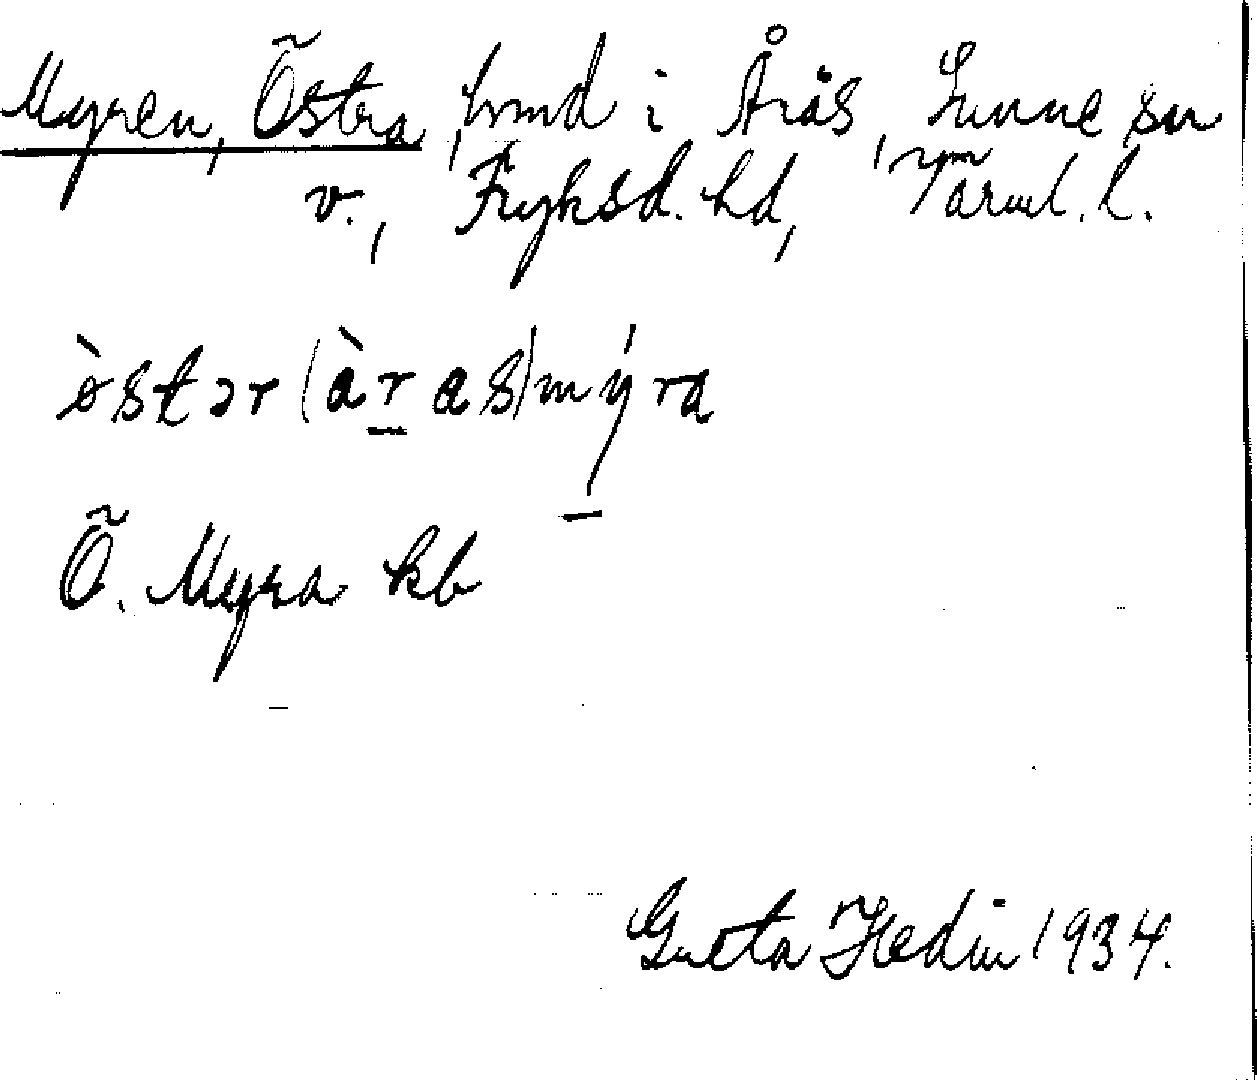 Myren, Östra, hmd i Årås, Sunne sn
v., Fryksd. hd, Värml. l.
östər(àras)mýra
Ö. Myra kb
Greta Hedin 1934.